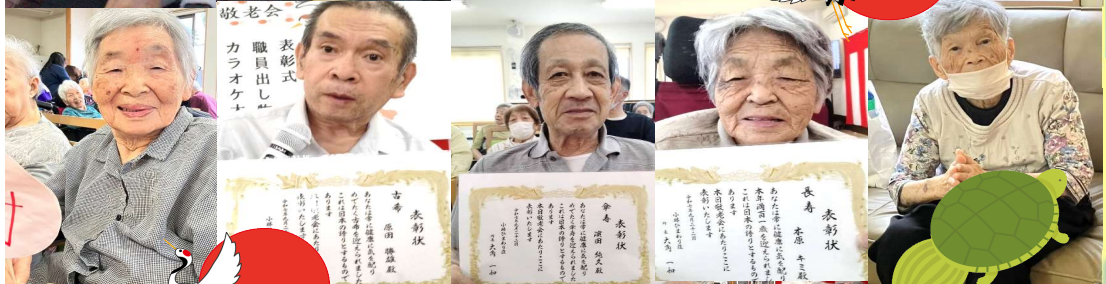 敬老会
表彰式
職員出し物
カラオケ大
表彰状
古希
原田 勝雄殿
あなたは常に健康に気を配り
めでたく古希を迎えられました
これは日本の誇りとするもので
あります
表彰いたしま
表彰状
傘寿
純久殿
あなたは常に健康に気を配り
めでたく傘寿を迎えられました
これは日本の誇りとするもので
あります
本日敬老会にあたりここに
表彰いたします
大角 一知
表彰状
長寿
本原 キミ殿
あなたは常に健康に気を配り
本年満百一歳を迎えられました
これは日本の誇りとするもので
あります
本日敬老会にあたりここに
表彰いたします
大角 一知